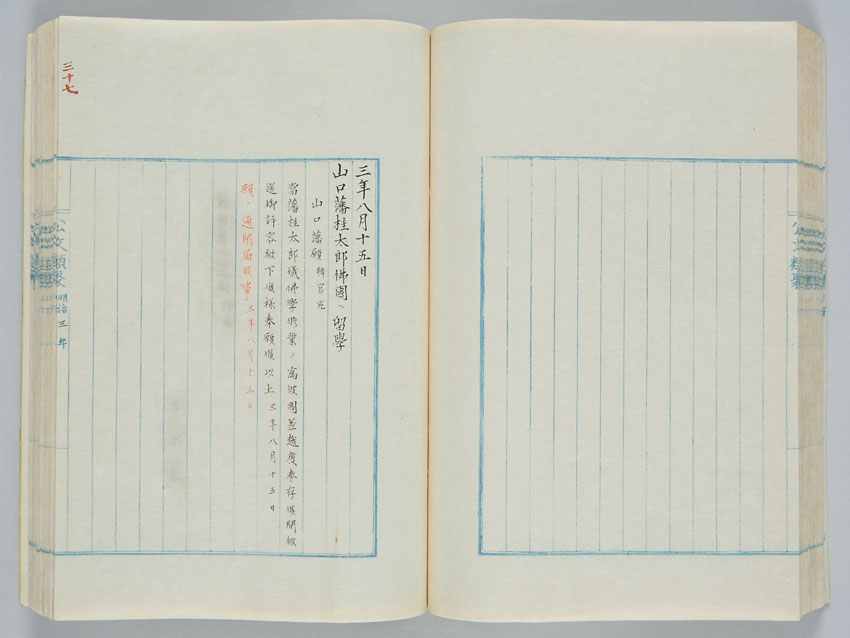 三年八月十五日
山口藩桂太郎佛國ヘ留學
山口藩願 辨官宛
當藩桂太郎儀佛學修業ノ為彼國罷越度奉存候間被
遊御許容被下候樣奉願候以上 三年八月十五日
願ノ通聞届候事 三年八月十五日
三十七
公文類聚 明治三年
公文類聚